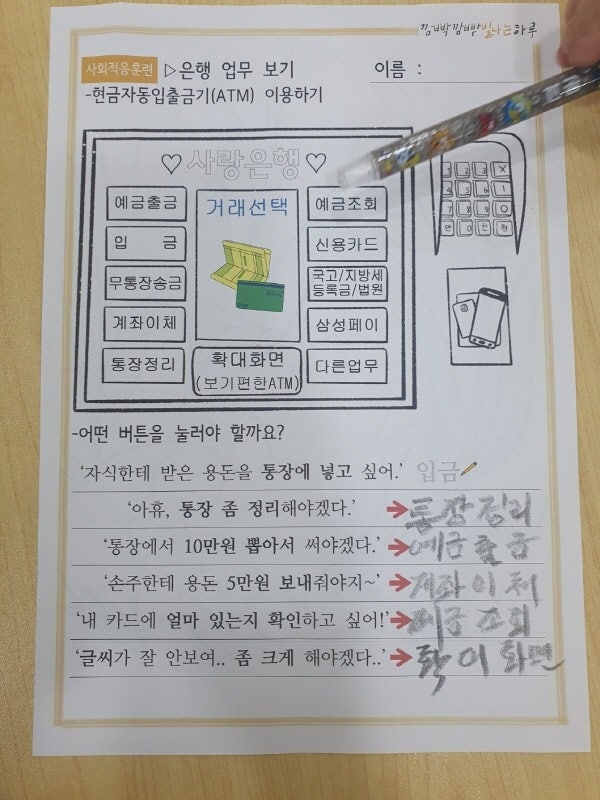 깜빡깜빡 빛나는 하루
사회적응훈련 ▷은행 업무 보기 이름 :
-현금자동입출금기(ATM) 이용하기
♡사랑은행♡
예금출금 거래선택 예금조회
입 금 신용카드
무통장송금 국고/지방세
등록금/법원
계좌이체 삼성페이
통장정리 확대화면 다른업무
(보기편한ATM)
-어떤 버튼을 눌러야 할까요?
‘자식한테 받은 용돈을 통장에 넣고 싶어.’ 입금
‘아휴, 통장 좀 정리해야겠다.’ ➔ 통장정리
‘통장에서 10만원 뽑아서 써야겠다.’ ➔ 예금출금
‘손주한테 용돈 5만원 보내줘야지~’ ➔ 계좌이체
‘내 카드에 얼마 있는지 확인하고 싶어!’ ➔ 예금조회
‘글씨가 잘 안보여.. 좀 크게 해야겠다..’ ➔ 확이화면